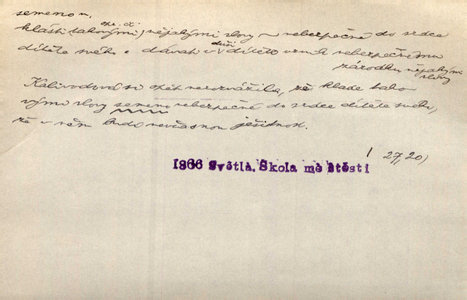 semenem.
klásti takovými nějakými slovy nebezpečné do srdce
dítěte svého dávati v duši dítěte vznik nebezpečnému
zárodku nějakými slovy
Kalivodová si opět nerozvážila, že klade tako
vými slovy semeno nebezpečné do srdce dítěte svého,
že v něm budí nevčasnou ješitnost.
1 27, 20)
1866 Světlá, Škola mé štěstí